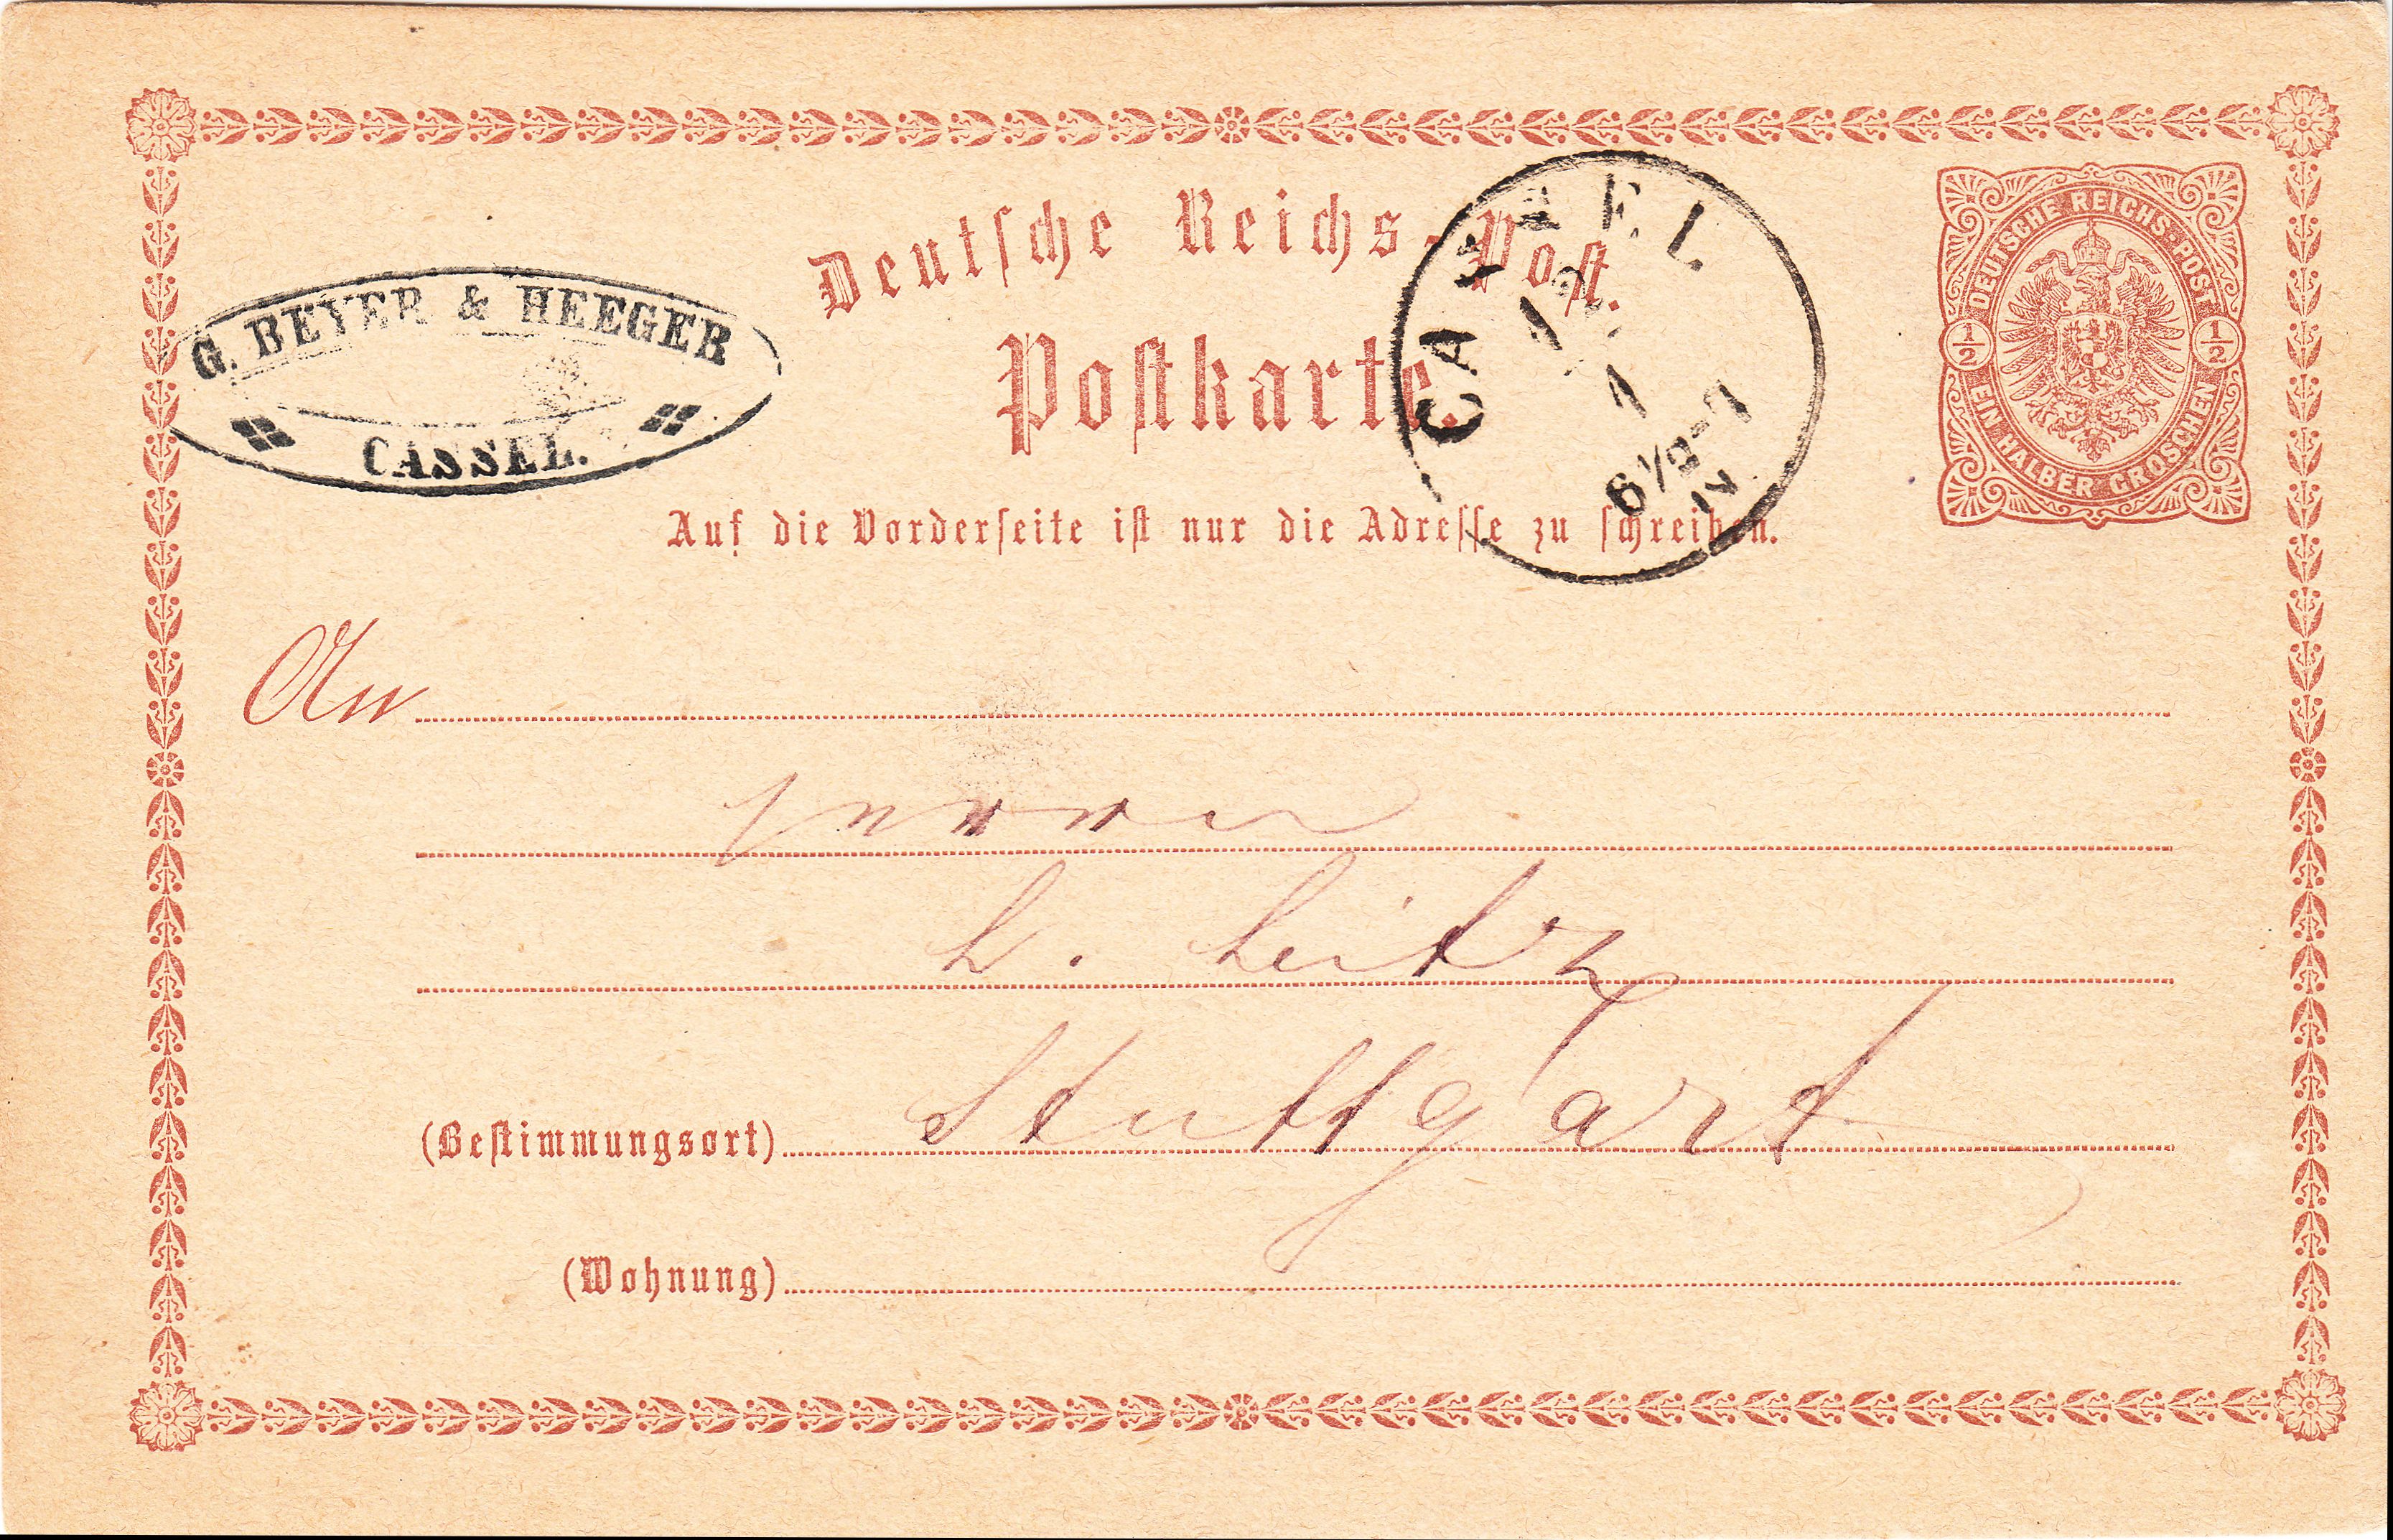 Deutsche Reichs-Post.
Postkarte.
G. BEYER & HEEGER
CASSEL.
CASSEL
DEUTSCHE REICHS-POST
1/2 1/2
EIN HALBER GROSCHEN
Auf die Vorderseite ist nur die Adresse zu schreiben.
An
Herrn
L. Leitz
Stuttgart
(Bestimmungsort)
(Wohnung)